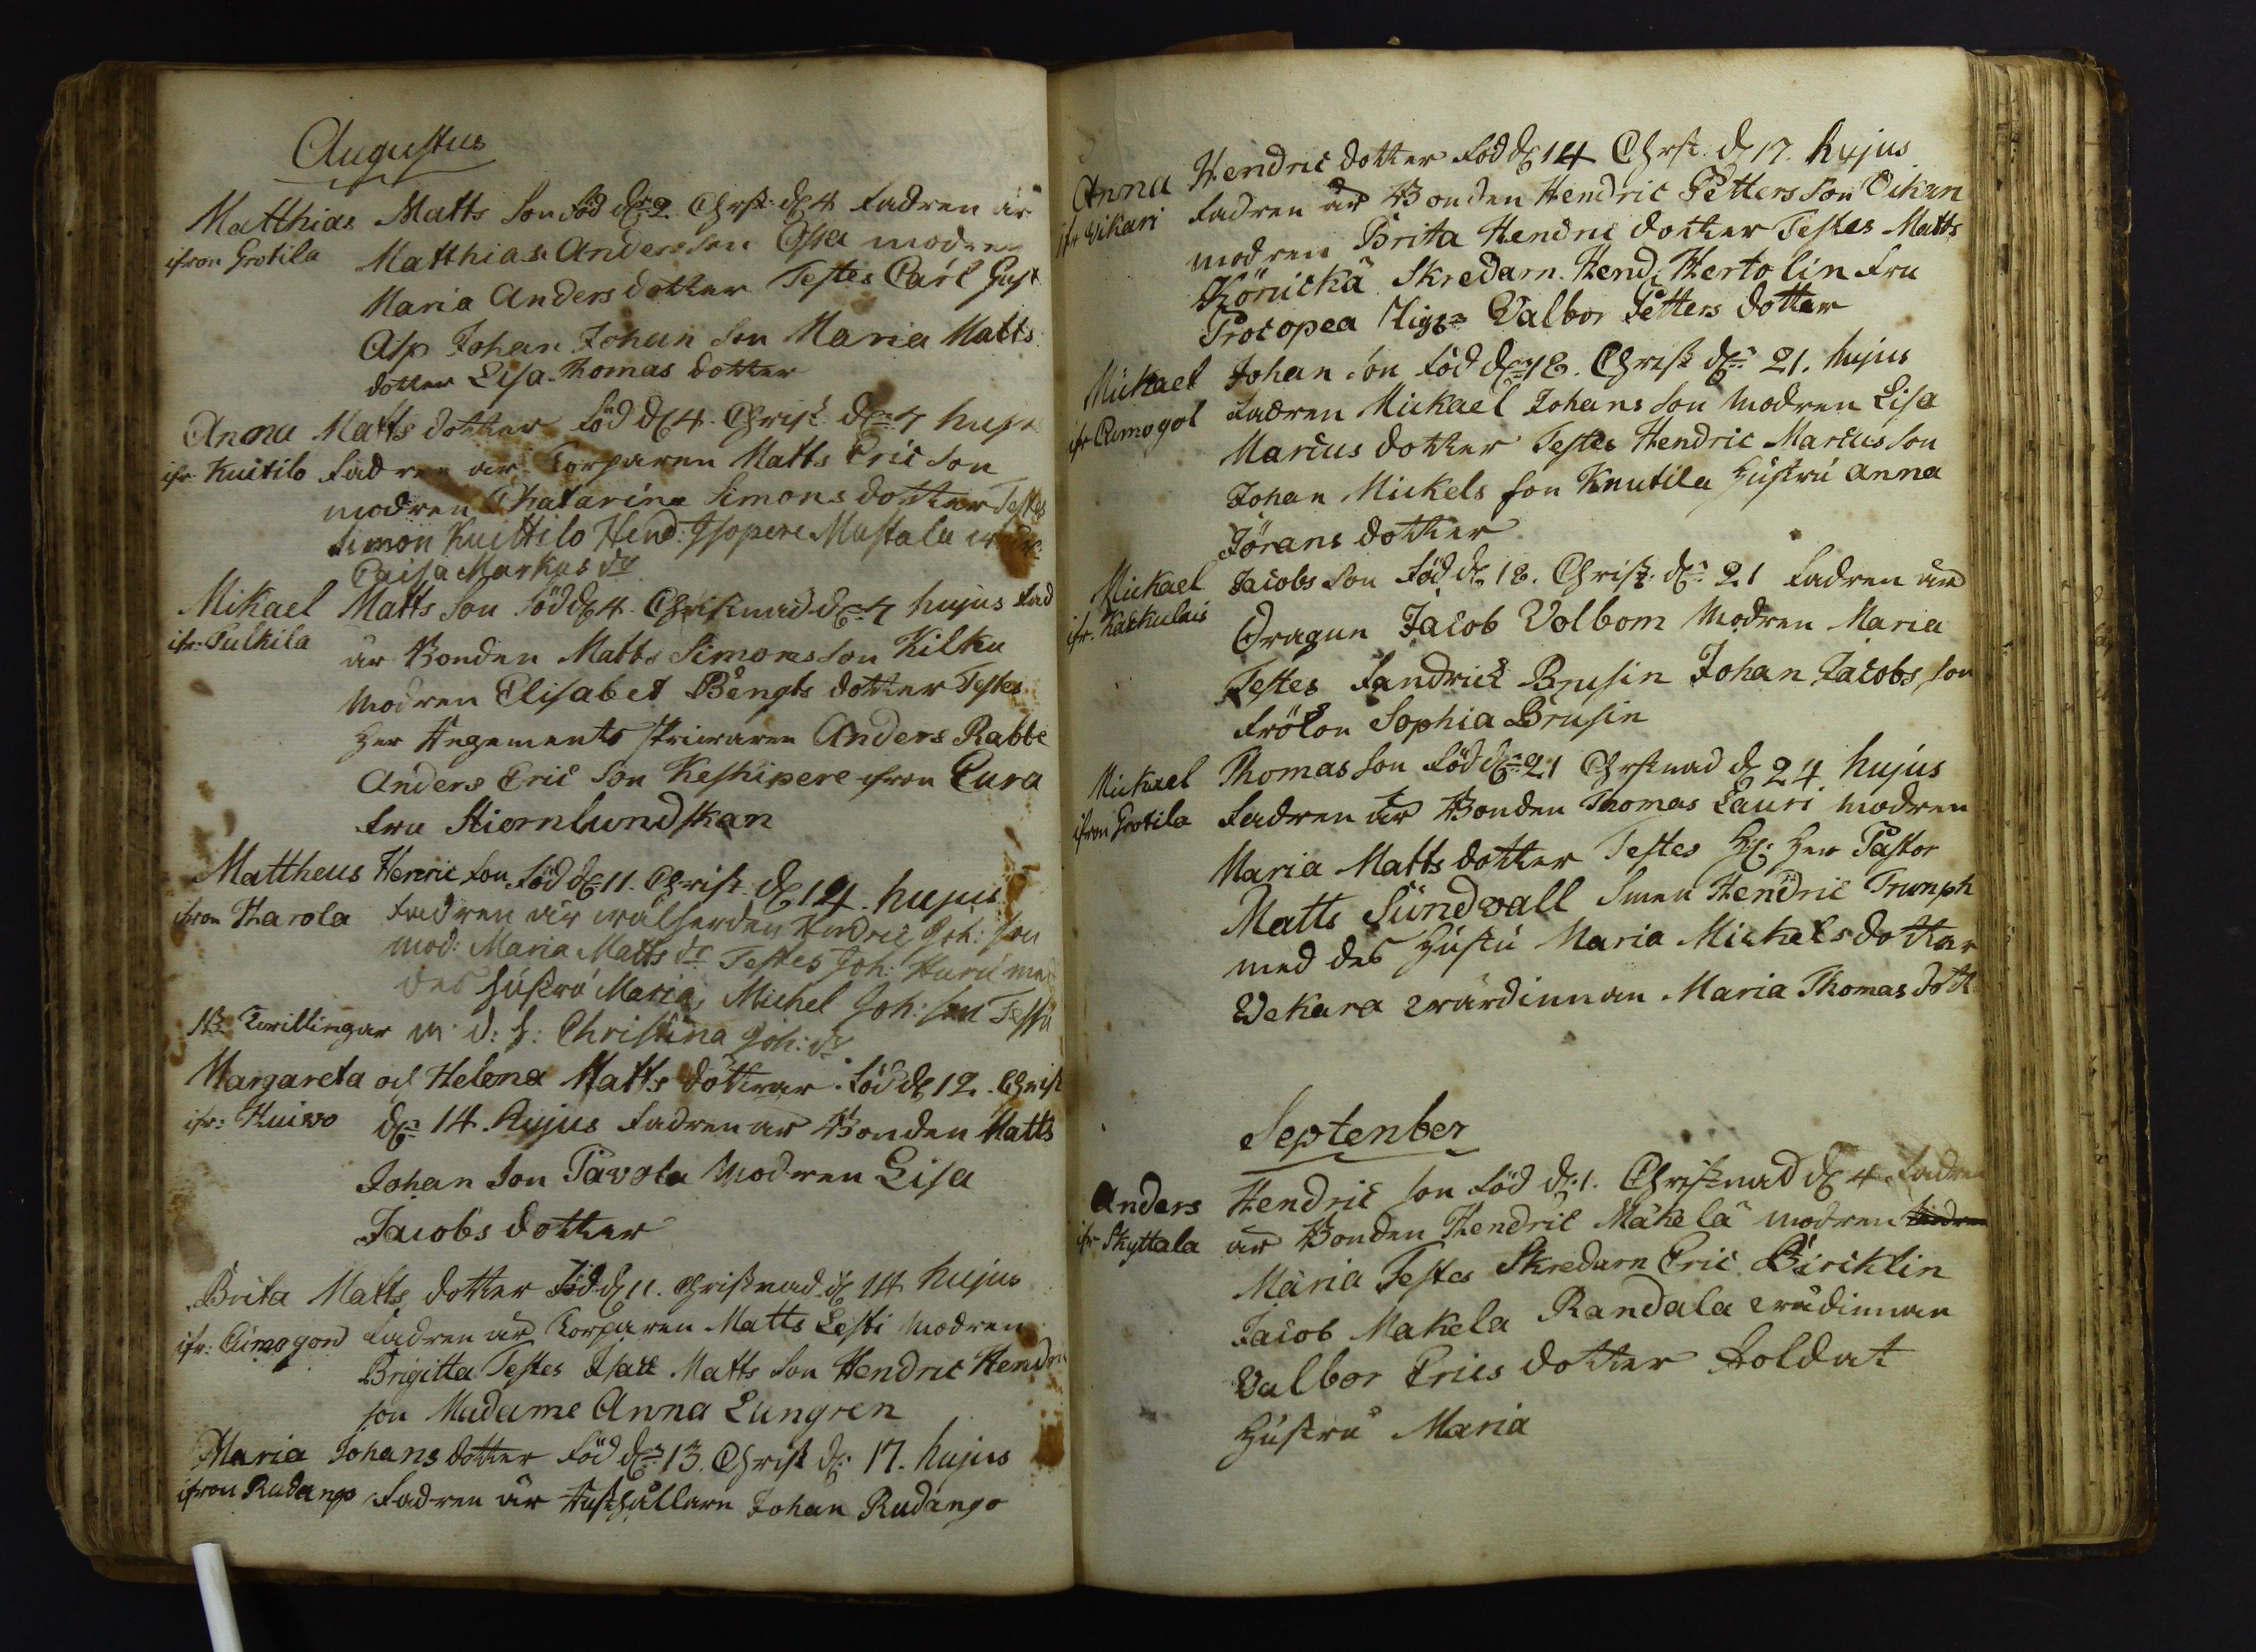 Augustus
Matthias Matts Son Föd d: 2. Christ. d: 4 Fadren är
ifron Grotila Matthias Anders son Ossa modren
Maria Anders dotter Testes Carl Gust
Asp Johan Johan Son Maria Matts
dotter Lisa Thomas dotter
Anna Matts dotter Föd d: 4. Christ d: 7 hujus
ifr. Kuitilo Fadren är Torparen Matts Eric Son
modren Chatarina Simons dotter Testes
Simon Kuittilo Hend: Isopere Mustala
Caisa Markus dr
Mikael Matts Son Föd d: 4. Christnad d: 7 hujus Fad
ifr: Pulkila är Bonden Matts Simons Son Kilku
Modren Elisabet Bengts dotter Testes
Her Regements skriwaren Anders Rabbe
Anders Eric Son Keskipere ifron Eura
Fru Hiornlundskan
Mattheus Henric Son Föd d: 11. Christ. d: 14. hujus
ifron Harola Fadren är Hindric Joh: son
mod: Maria Matts dr Testes Joh: Haru med
des hustru Maria, Michel Joh: son
NB Twillingar m: d: h: Christina Joh: dr
Margareta och Helena Matts döttrar Föd d: 12. Christ
ifr: Kuiwo d: 14. hujus Fadren är Bonden Matts
Johan Son Pavola Modren Lisa
Jacobs dotter
Brita Matts dotter Föd d: 11. Christnad d: 14 hujus
ifr: Eimogon Fadren är Torparen Matts Lesti Modren
Brigitta Testes Isac Matts Son Hendric Hendric
son Madame Anna Lungren
Maria Johans dotter Föd d: 13. Christ d: 17. hujus
ifron Rudango Fadren är Hushållarn Johan Rudango
Anna Hendric dotter Föd d: 14 Christ. d: 17. hujus
ifr Vikari Fadren är Bonden Hendric Petters Son Vikari
modren Brita Hendric dotter Testes Matts
Körnickä Skredarn Hend: Hertolin Fru
Procopea Valbor Petters dotter
Mickael Johan son Föd d: 18. Christ d: 21. hujus
ifr Eimogol Fadren Mickael Johans Son Modren Lisa
Marcus dotter Testes Hendric Marcus Son
Johan Mickels son Knutila hustru Anna
Jörans dotter
Mickael Jacobs Son Föd d: 18. Christ. d: 21 Fadren är
ifr. Karkulais Dragun Jacob Volbom Modren Maria
Testes Fendrick Brusin Johan Jacobs son
Fröken Sophia Brusin
Mickael Thomas Son Föd d: 21 Christnad d: 24 hujus
ifron Grotila Fadren är Bonden Thomas Lauri modren
Maria Matts dotter Testes Her Pastor
Matts Sundvall Smen Hendric Trumph
med des hustru Maria Mickels dotter
Wekara wärdinnan Maria Thomas dott
Septenber
Anders Hendric son Föd d: 1. Christnad d: 4 Fadren
ifr Skyttala är Bonden Hendric Mäkelä modren
Maria Testes Skredarn Eric Bircklin
Jacob Makela Randala wrädinnan
Valbor Erics dotter Soldat
hustru Maria